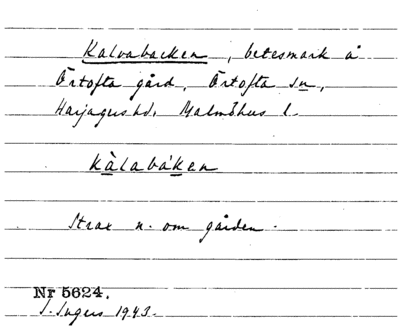 Kalvabacken, betesmark å
Örtofta gård, Örtofta sn,
Harjagers hd. Malmöhus l.
kàlabáken
Strax n. om gården.
Nr 5624.
I. Ingers 1943.